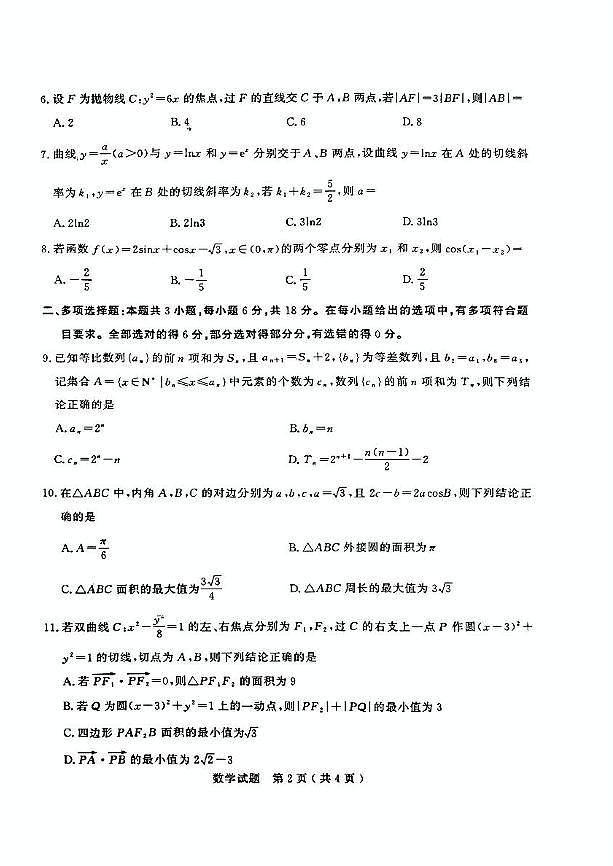 6. 设 F 为抛物线 C:y²=6x 的焦点,过 F 的直线交 C 于 A,B 两点,若|AF|=3|BF|,则|AB|=
A. 2 B. 4 C. 6 D. 8
7. 曲线 y=a/x(a>0)与 y=lnx 和 y=eˣ 分别交于 A、B 两点,设曲线 y=lnx 在 A 处的切线斜
率为 k₁,y=eˣ 在 B 处的切线斜率为 k₂,若 k₁+k₂=5/2,则 a=
A. 2ln2 B. 2ln3 C. 3ln2 D. 3ln3
8. 若函数 f(x)=2sinx+cosx-√3,x∈(0,π)的两个零点分别为 x₁ 和 x₂,则 cos(x₁-x₂)=
A. -2/5 B. -1/5 C. 1/5 D. 2/5
二、多项选择题:本题共 3 小题,每小题 6 分,共 18 分。在每小题给出的选项中,有多项符合题
目要求。全部选对的得 6 分,部分选对得部分分,有选错的得 0 分。
9. 已知等比数列{aₙ}的前 n 项和为 Sₙ,且 aₙ₊₁=Sₙ+2,{bₙ}为等差数列,且 b₂=a₁,b₈=a₃,
记集合 A={x∈N*|bₙ≤x≤aₙ}中元素的个数为 cₙ,数列{cₙ}的前 n 项和为 Tₙ,则下列结
论正确的是
A. aₙ=2ⁿ B. bₙ=n
C. cₙ=2ⁿ-n D. Tₙ=2ⁿ⁺¹-n(n-1)/2-2
10. 在△ABC 中,内角 A,B,C 的对边分别为 a,b,c,a=√3,且 2c-b=2acosB,则下列结论正
确的是
A. A=π/6 B. △ABC 外接圆的面积为 π
C. △ABC 面积的最大值为3√3/4 D. △ABC 周长的最大值为 3√3
11. 若双曲线 C:x²-y²/8=1 的左、右焦点分别为 F₁,F₂,过 C 的右支上一点 P 作圆(x-3)²+
y²=1 的切线,切点为 A,B,则下列结论正确的是
A. 若 PF₁·PF₂=0,则△PF₁F₂ 的面积为 9
B. 若 Q 为圆(x-3)²+y²=1 上的一动点,则|PF₂|+|PQ|的最小值为 3
C. 四边形 PAF₂B 面积的最小值为√3
D. PA·PB 的最小值为 2√2-3
数学试题 第 2 页(共 4 页)